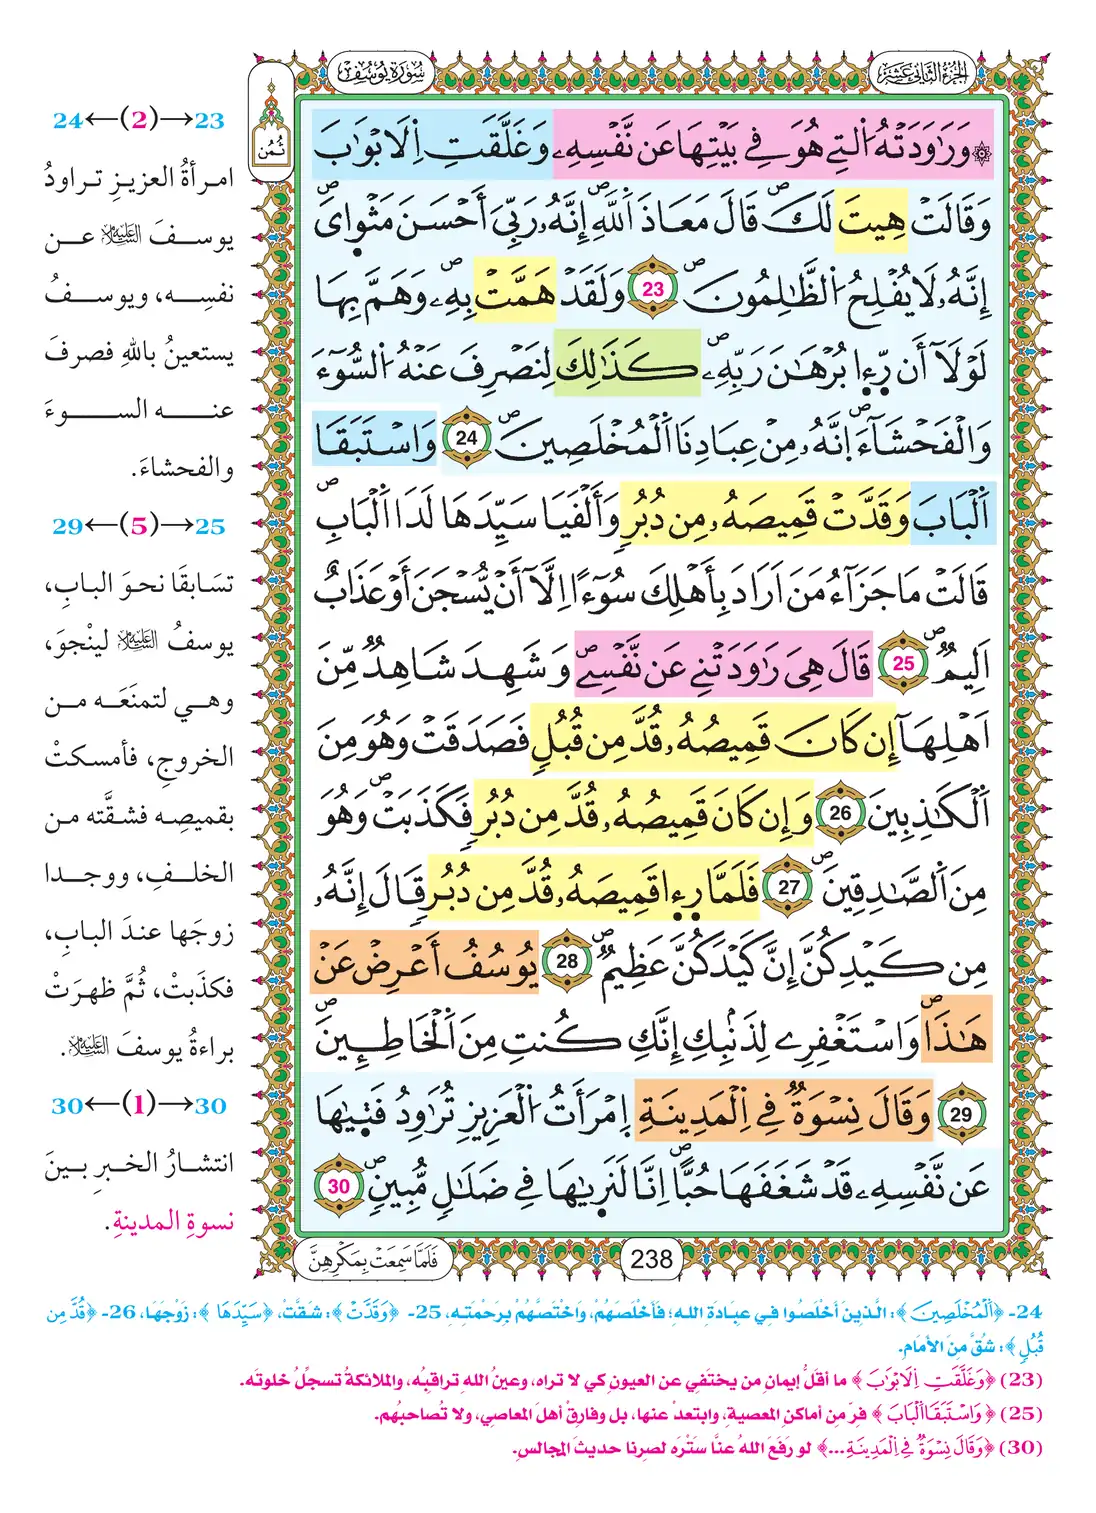 الجزء الثاني عشر
سورة يوسف
ثمن
وَرَٰوَدَتْهُ اُ۬لتِے هُوَ فِے بَيْتِهَا عَن نَّفْسِهِۦ وَغَلَّقَتِ اِ۬لَابْوَٰبَ
وَقَالَتْ هِيتَ لَكَۖ قَالَ مَعَاذَ اَ۬للَّهِۖ إِنَّهُۥ رَبِّيَ أَحْسَنَ مَثْوَايَۖ
إِنَّهُۥ لَا يُفْلِحُ اُ۬لظَّٰلِمُونَۖ 23 وَلَقَدْ هَمَّتْ بِهِۦۖ وَهَمَّ بِهَا
لَوْلَآ أَن رّ۪ء۪ا بُرْهَٰنَ رَبِّهِۦۖ كَذَٰلِكَ لِنَصْرِفَ عَنْهُ اُ۬لسُّوٓءَ
وَالْفَحْشَآءَۖ اِنَّهُۥ مِنْ عِبَادِنَا اَ۬لْمُخْلَصِينَۖ 24 وَاسْتَبَقَا
اَ۬لْبَابَ وَقَدَّتْ قَمِيصَهُۥ مِن دُبُرٖ وَأَلْفَيَا سَيِّدَهَا لَدَا اَ۬لْبَابِۖ
قَالَتْ مَا جَزَآءُ مَنَ اَرَادَ بِأَهْلِكَ سُوٓءًا اِلَّآ أَنْ يُّسْجَنَ أَوْ عَذَابٌ
اَلِيمٌۖ 25 قَالَ هِيَ رَٰوَدَتْنِے عَن نَّفْسِےۖ وَشَهِدَ شَاهِدٌ مِّنَ
اَهْلِهَآ إِن كَانَ قَمِيصُهُۥ قُدَّ مِن قُبُلٖ فَصَدَقَتْ وَهُوَ مِنَ
اَ۬لْكَٰذِبِينَ 26 وَإِن كَانَ قَمِيصُهُۥ قُدَّ مِن دُبُرٖ فَكَذَبَتْۖ وَهُوَ
مِنَ اَ۬لصَّٰدِقِينَۖ 27 فَلَمَّا ر۪ء۪ا قَمِيصَهُۥ قُدَّ مِن دُبُرٖ قَالَ إِنَّهُۥ
مِن كَيْدِكُنَّ إِنَّ كَيْدَكُنَّ عَظِيمٌۖ 28 يُوسُفُ أَعْرِضْ عَنْ
هَٰذَاۖ وَاسْتَغْفِرِے لِذَنۢبِكِ إِنَّكِ كُنتِ مِنَ اَ۬لْخَاطِـِٕينَۖ
29 وَقَالَ نِسْوَةٌ فِے اِ۬لْمَدِينَةِ اِ۪مْرَأَتُ اُ۬لْعَزِيزِ تُرَٰوِدُ فَت۪يٰهَا
عَن نَّفْسِهِۦ قَدْ شَغَفَهَا حُبّاًۖ اِنَّا لَنَر۪يٰهَا فِے ضَلَٰلٖ مُّبِينٖۖ 30
فَلَمَّا سَمِعَتْ بِمَكْرِهِنَّ
238
23→(2)←24
امرأةُ العزيزِ تراودُ
يوسفَ عليه السلام عن
نفسِه، ويوسفُ
يستعينُ باللهِ فصرفَ
عنه السوءَ
والفحشاءَ.
25→(5)←29
تسَابقَا نحوَ البابِ،
يوسفُ عليه السلام لينْجوَ،
وهي لتمنَعَه من
الخروجِ، فأمسكتْ
بقميصِه فشقَّته من
الخلفِ، ووجدا
زوجَها عندَ البابِ،
فكذَبتْ، ثُمَّ ظهرَتْ
براءةُ يوسفَ عليه السلام.
30→(1)←30
انتشارُ الخبرِ بينَ
نسوةِ المدينةِ.
24- ﴿اَ۬لْمُخْلَصِينَ﴾: الَّذِينَ أخْلَصُوا فِي عِبَادَةِ اللهِ؛ فَأَخْلَصَهُمْ، وَاخْتَصَّهُمْ بِرَحْمَتِهِ، 25- ﴿وَقَدَّتْ﴾: شَقَّتْ، ﴿سَيِّدَهَا﴾: زَوْجَهَا، 26- ﴿قُدَّ مِن
قُبُلٖ﴾: شُقَّ مِنَ الأَمَامِ.
(23) ﴿وَغَلَّقَتِ اِ۬لَابْوَٰبَ﴾ ما أقلَّ إيمانِ من يختَفي عن العيونِ كي لا تراه، وعينُ اللهِ تراقبُه، والملائكةُ تسجلُ خلوتَه.
(25) ﴿وَاسْتَبَقَا اَ۬لْبَابَ﴾ فِرّ مِن أماكنِ المعصيةِ، وابتعدْ عنها، بل وفارقْ أهلَ المعاصي، ولا تُصاحبْهُم.
(30) ﴿وَقَالَ نِسْوَةٌ فِے اِ۬لْمَدِينَةِ...﴾ لو رفَعَ اللهُ عنَّا ستْرَه لصرنا حديثَ المجالسِ.